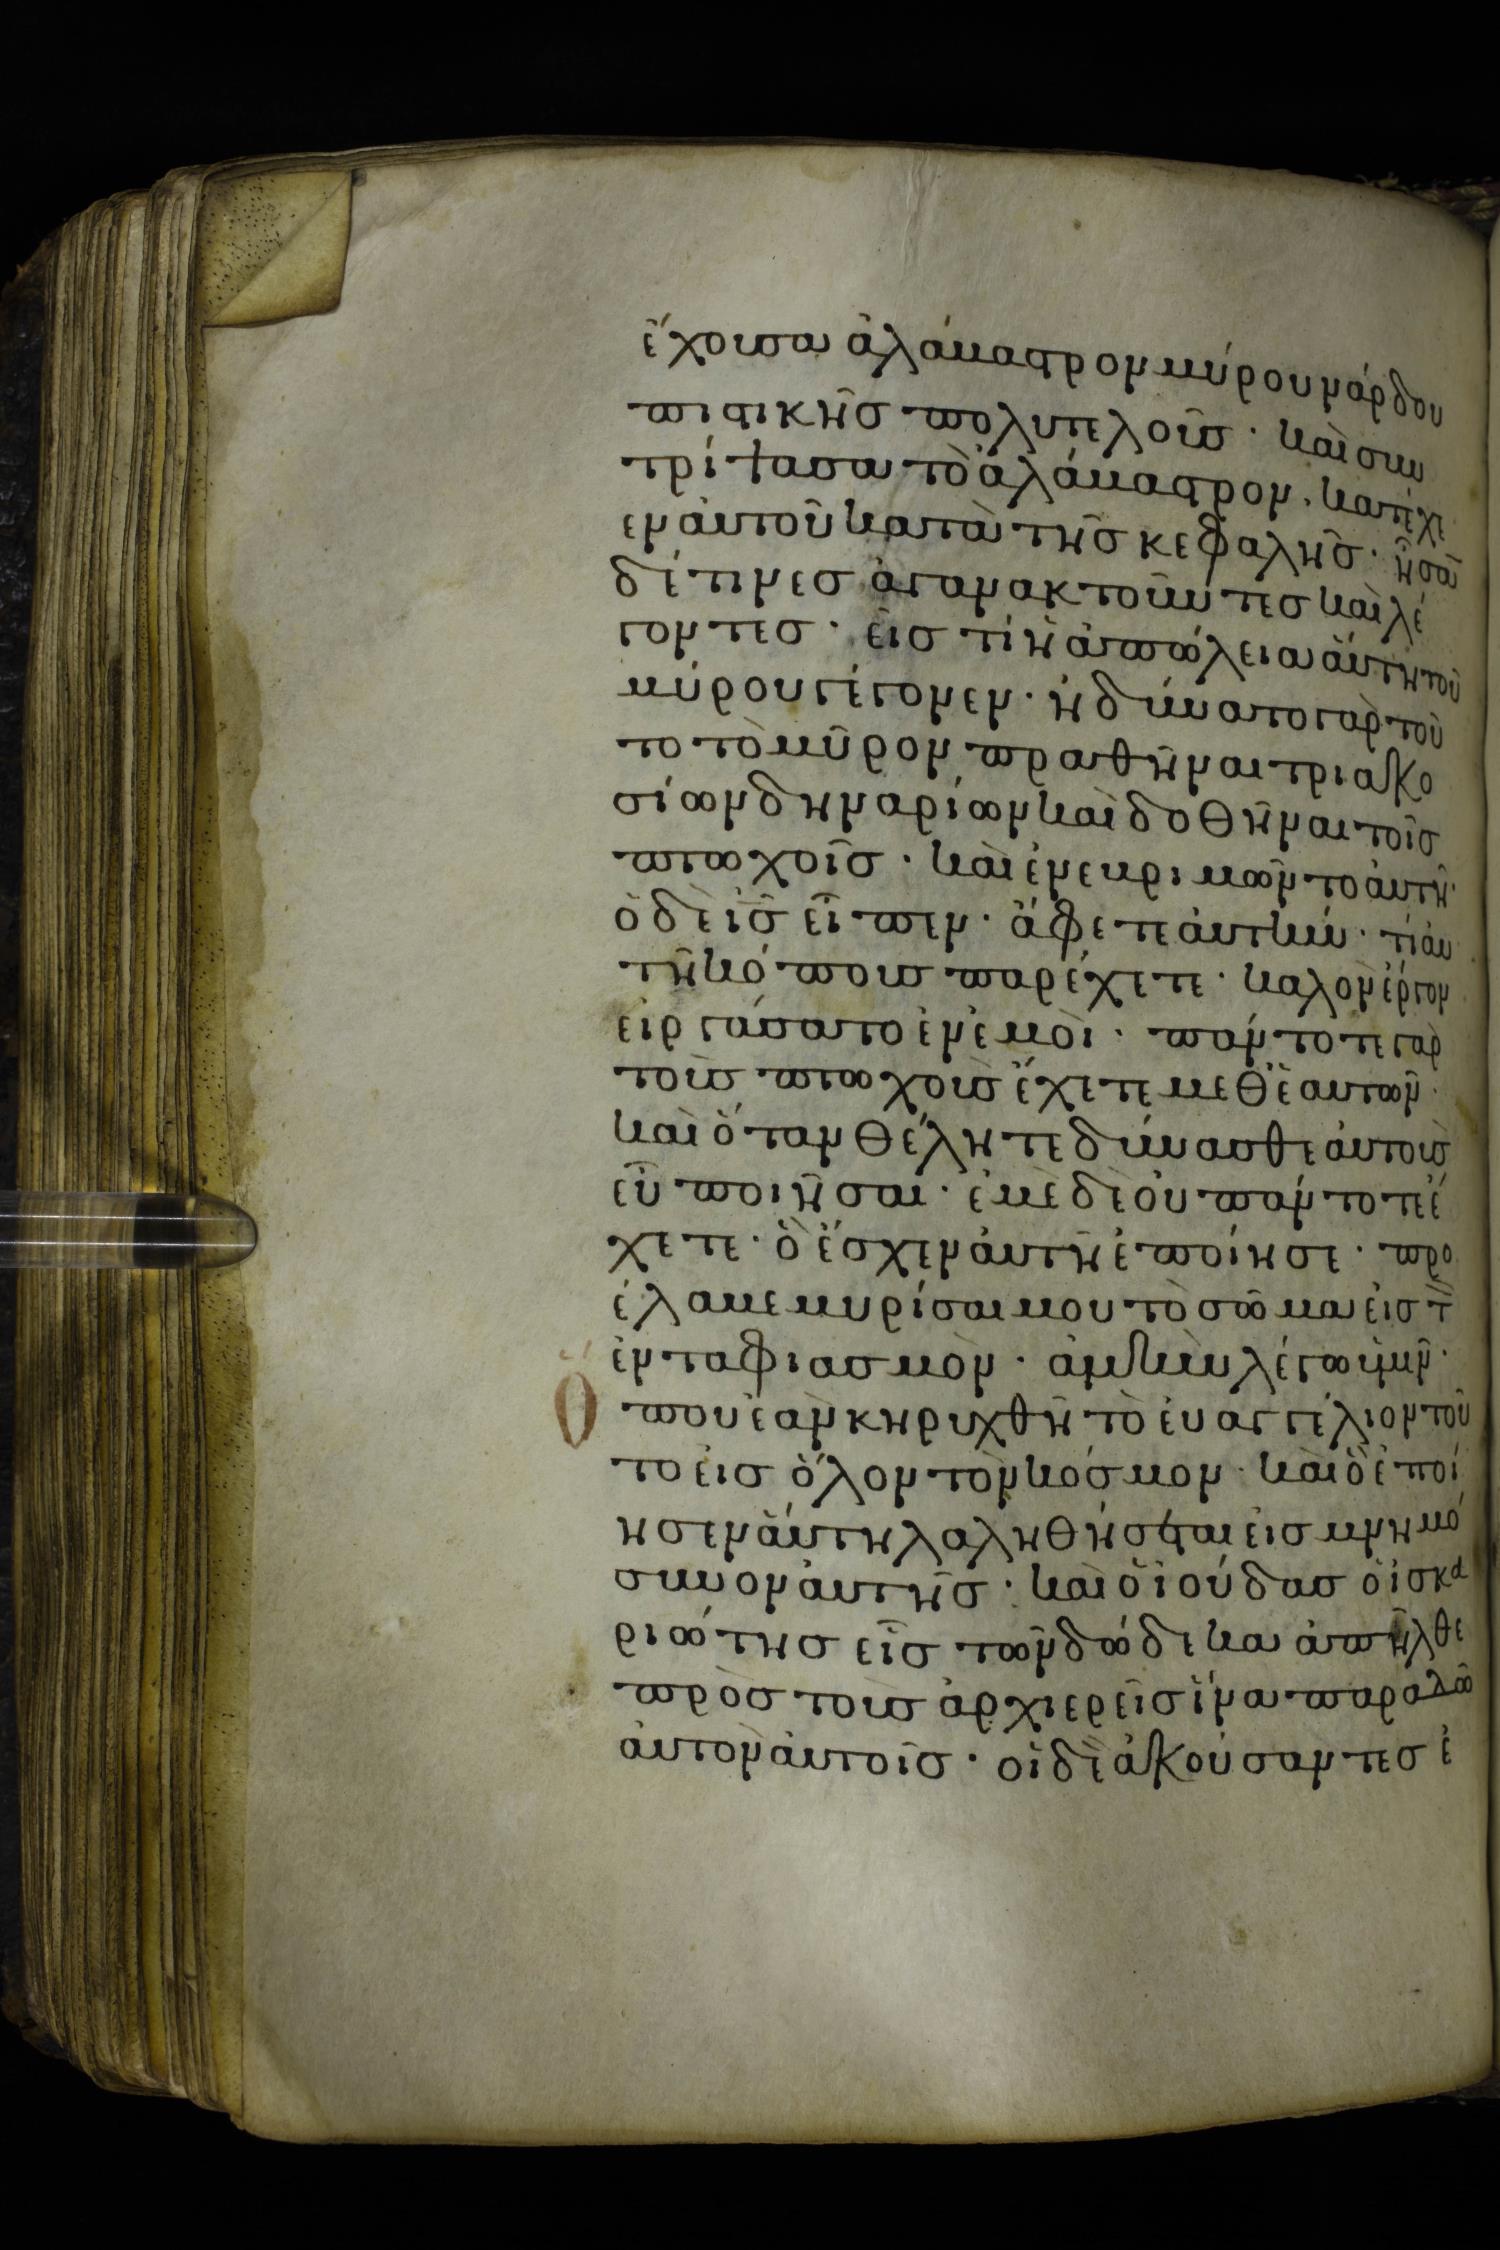 ἔχουσα ἀλάβαστρον μύρου νάρδου
πιστικῆς πολυτελοῦς · καὶ συν
τρίψασα τὸ ἀλάβαστρον · κατέχε
εν αὐτοῦ κατὰ τῆς κεφαλῆς · ἦσαν
δέ τινες ἀγανακτοῦντες καὶ λέ
γοντες · εἰς τί ἡ ἀπώλεια αὕτη τοῦ
μύρου γέγονεν · ἠδύνατο γὰρ τοῦ
το τὸ μῦρον πραθῆναι τριακο
σίων δηναρίων καὶ δοθῆναι τοῖς
πτωχοῖς · καὶ ἐνεβριμῶντο αὐτῆ ·
ὁ δὲ ἰς εἶπεν · ἄφετε αὐτήν · τί αὐ
τῆ κόπους παρέχετε · καλὸν ἔργον
εἰργάσατο ἐν ἐμοὶ · πάντοτε γὰρ
τοὺς πτωχοὺς ἔχετε μεθ ἑαυτῶν ·
καὶ ὅταν θέλητε δύνασθε αὐτοὺς
εὖ ποιῆσαι · ἐμὲ δὲ οὐ πάντοτε ἔ
χετε · ὃ ἔσχεν αὐτὴ ἐποίησε · προ
έλαβε μυρίσαι μου τὸ σῶμα εἰς τὸν
ἐνταφιασμὸν · ἀμὴν λέγω ὑμῖν ·
Ὅπου ἐὰν κηρυχθῆ τὸ εὐαγγέλιον τοῦ
το εἰς ὅλον τὸν κόσμον · καὶ ὃ ἐποί
ησεν αὕτη λαληθήσεται εἰς μνημό
συνον αὐτῆς · καὶ ὁ ἰούδας ὁ ἰσκα
ριώτης εἷς τῶν δώδεκα ἀπῆλθε
πρὸς τοὺς ἀρχιερεῖς ἵνα παραδῶ
αὐτὸν αὐτοῖς · οἱ δὲ ἀκούσαντες ἐ